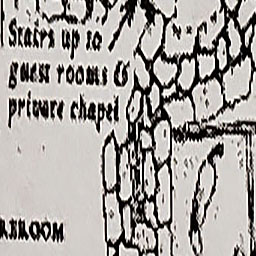 Stairs up to
guest rooms &
private chapel
REROOM